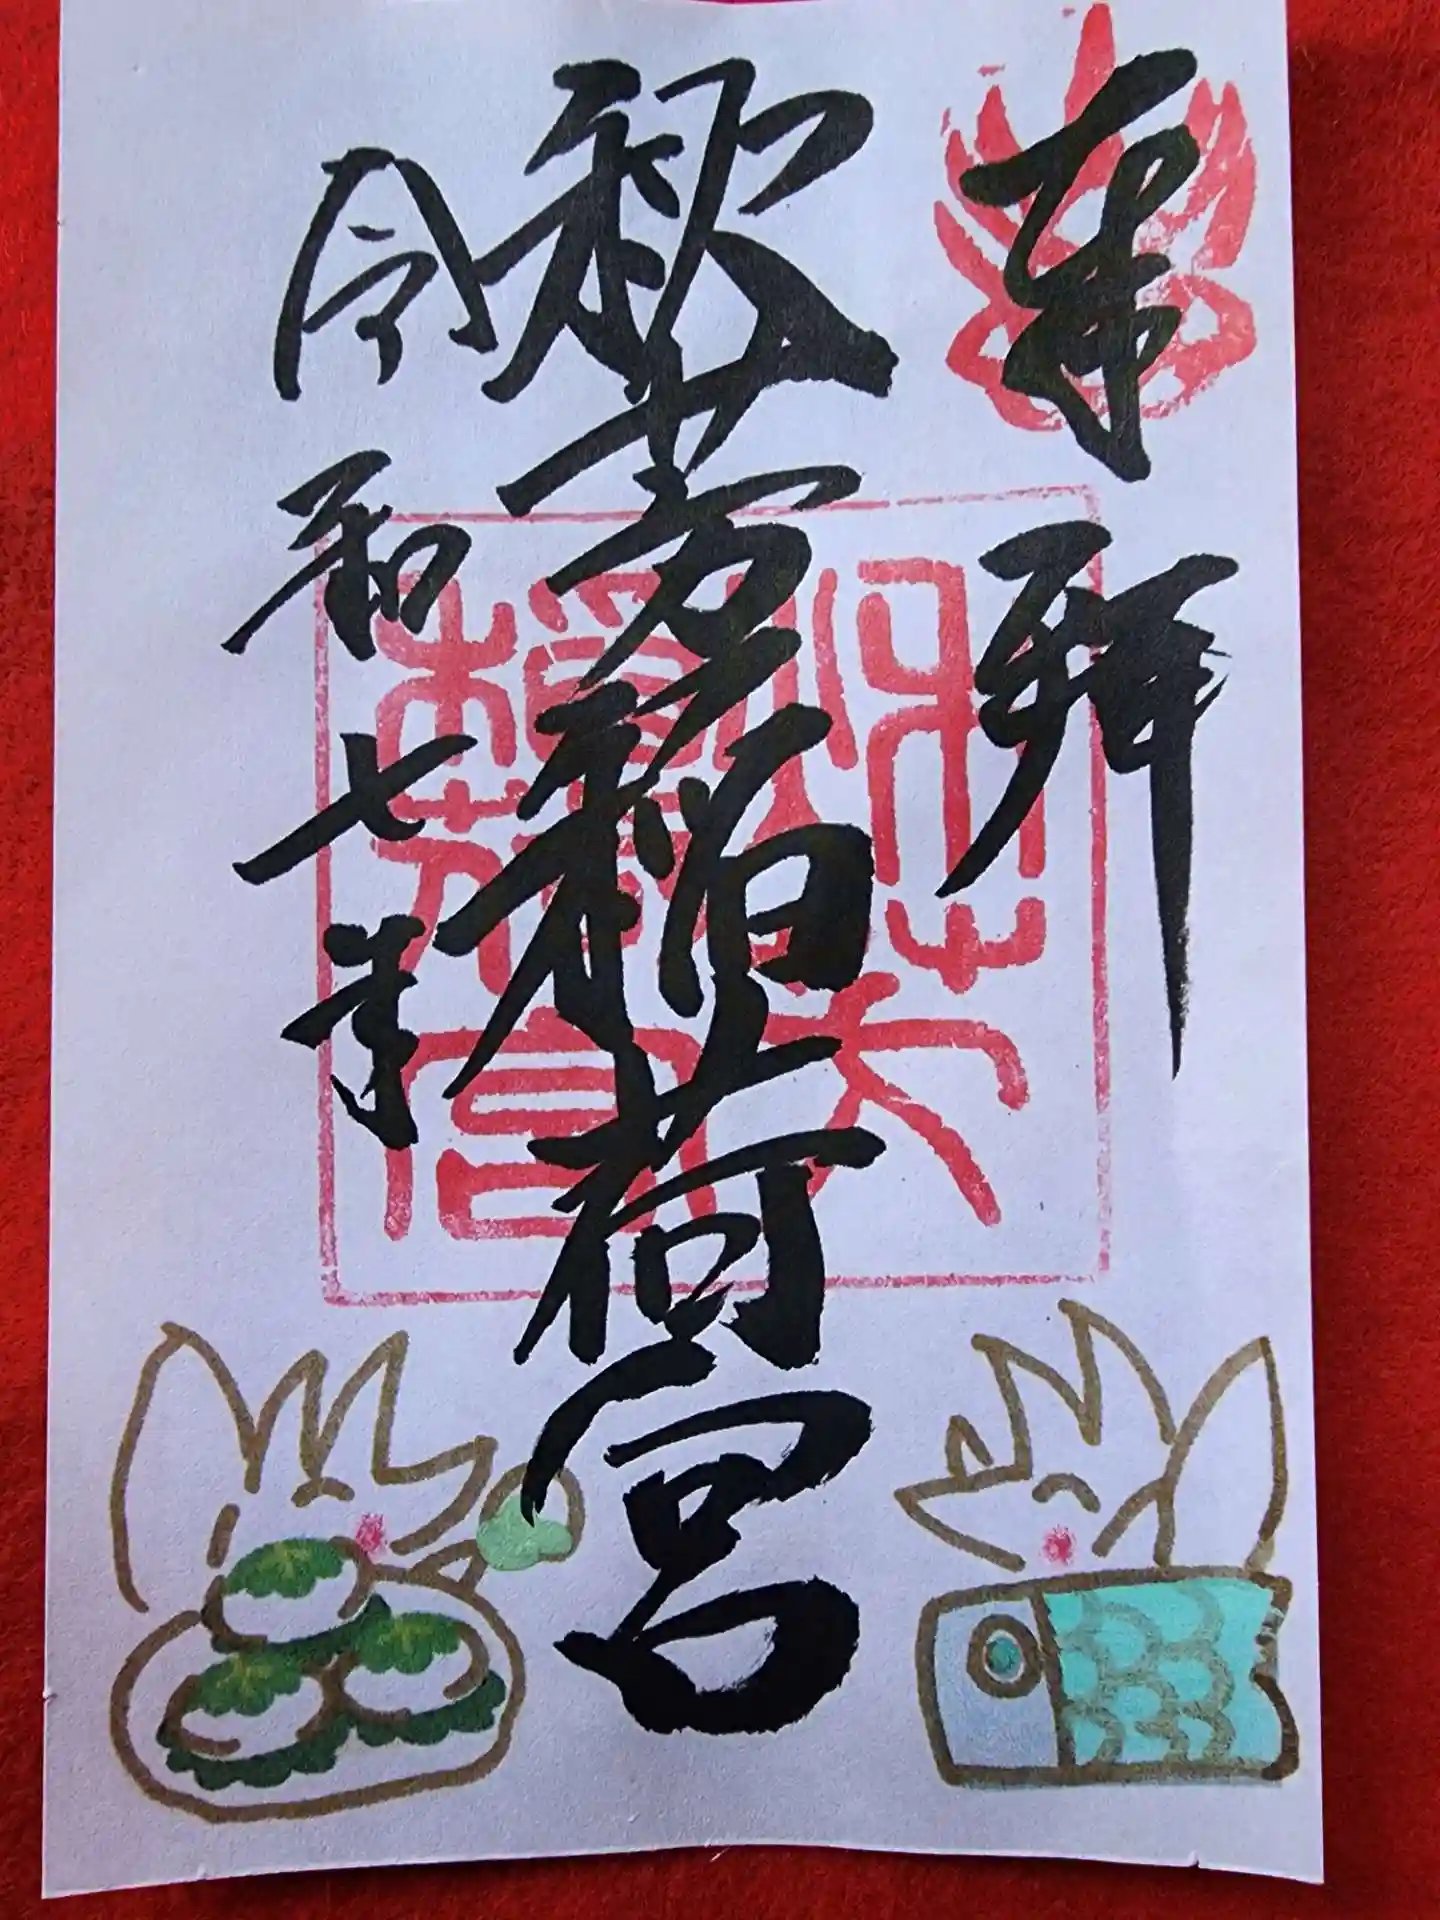 奉拝
秋芳稲荷宮
令和七年